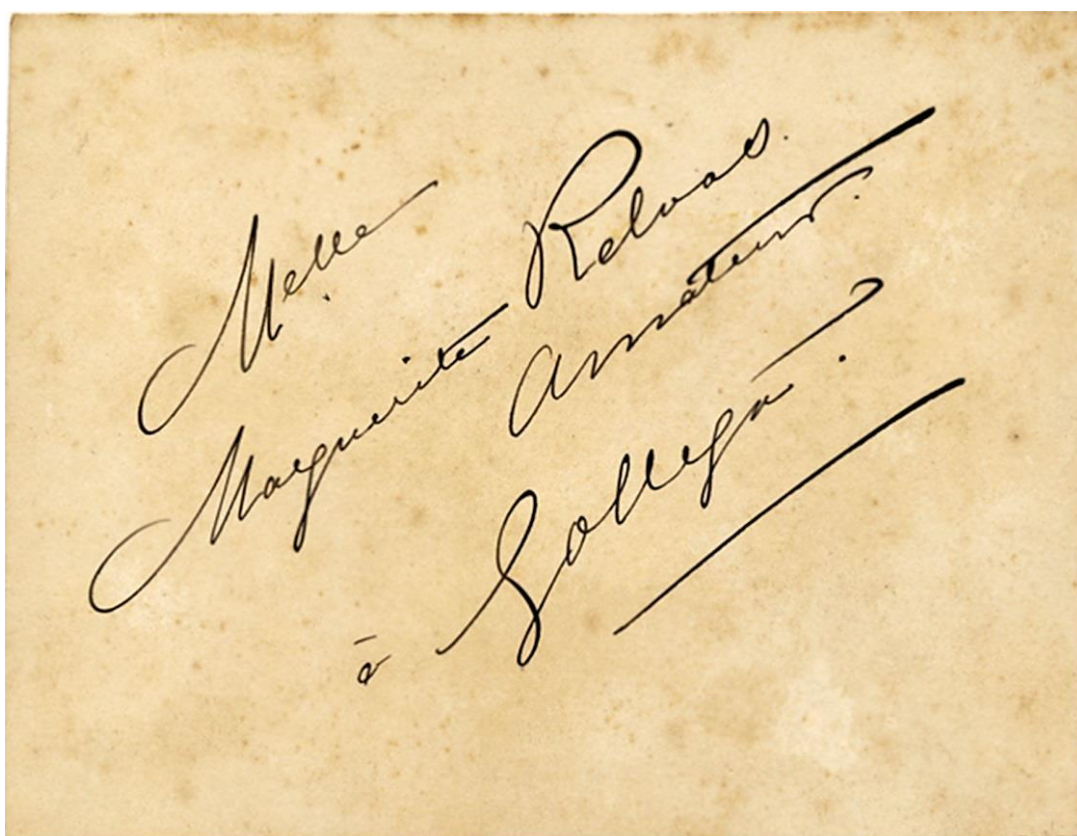 Melle
Marguerite Relvas.
Amateur.
à Gollegã.